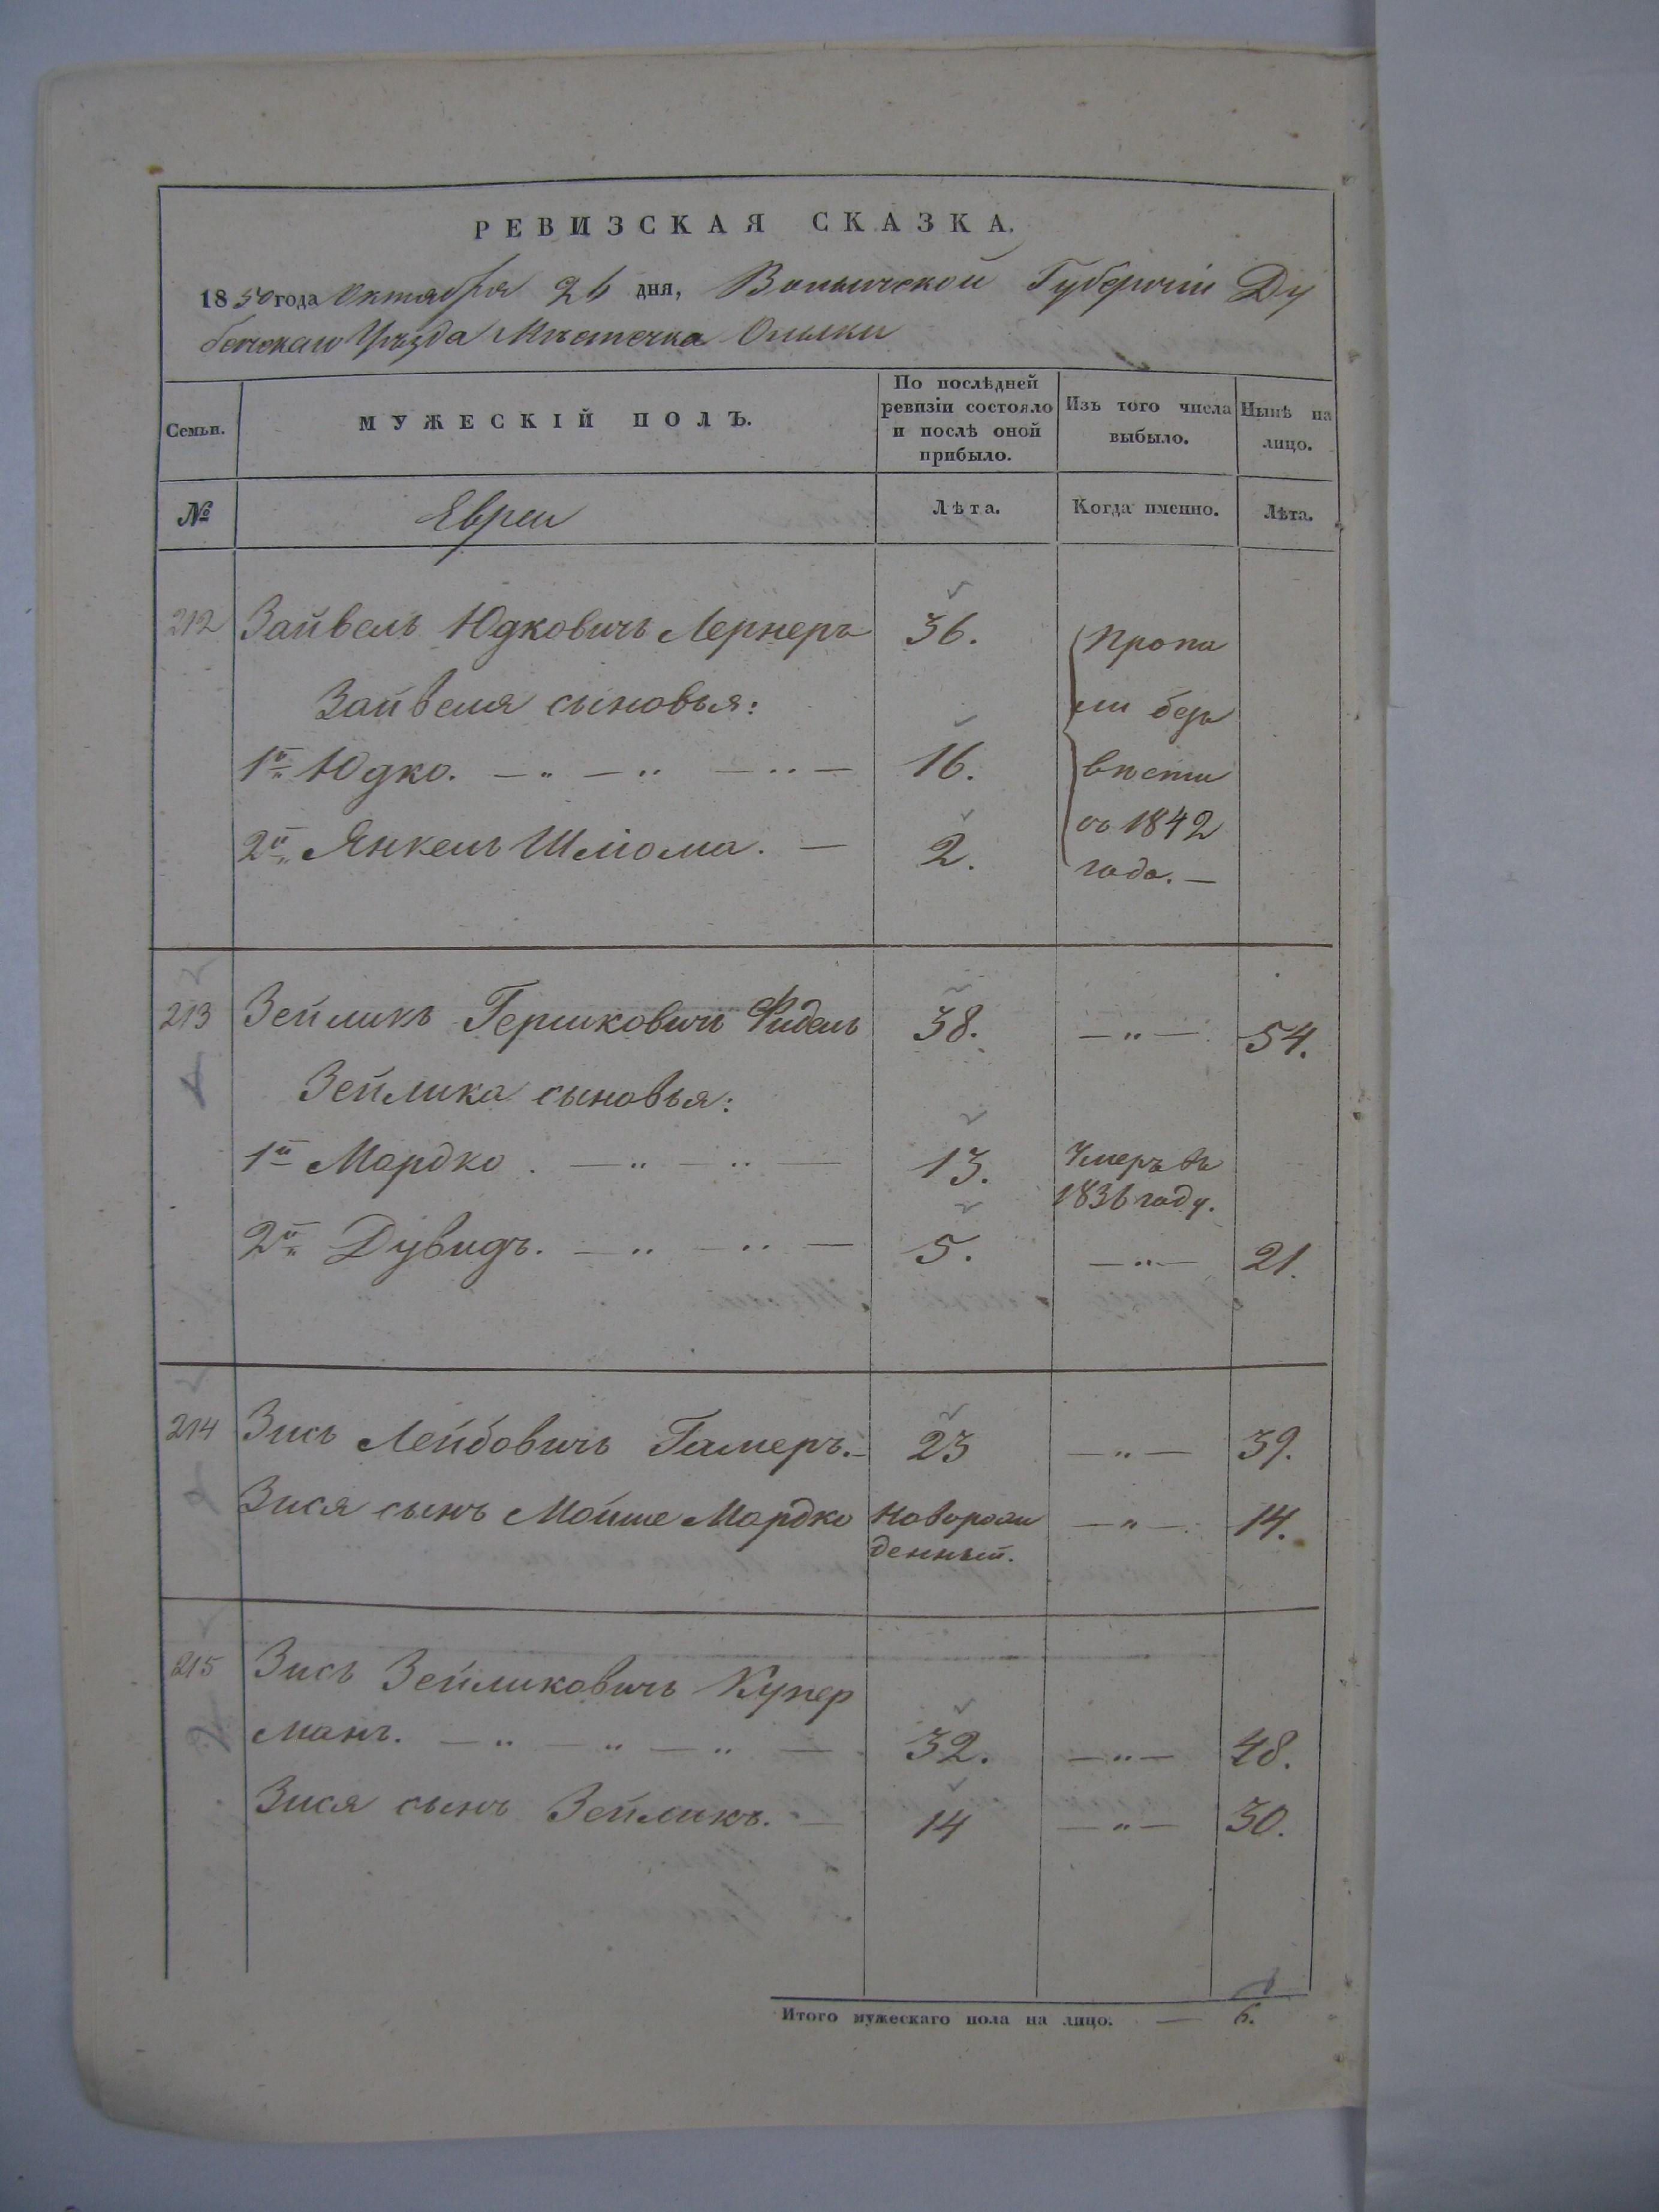 РЕВИЗСКАЯ СКАЗКА.
1850 года Октября 26 дня, Волынской Губерніи Ду
бенскаго Уѣзда Мѣстечка Олыки
Семьи. МУЖЕСКІЙ ПОЛЪ. По послѣдней ревизіи состояло и послѣ оной прибыло. Изъ того числа выбыло. Нынѣ на лицо.
№ Евреи Лѣта. Когда именно. Лѣта.
212 Зайвель Юдковичъ Лернеръ 36. Пропа
Зайвеля сыновья: ли безъ
1й Юдко. 16. вѣсти
2й Янкель Шліома. 2. съ 1842
года.
213 Зейликъ Гершковичъ Фидель 38. 54.
Зейлика сыновья:
1й Мордко. 13. Умеръ въ
1836 году.
2й Дувидъ. 5. 21.
214 Зись Лейбовичъ Гамеръ. 23 39.
Зися сынъ Мойше Мордко Новорож 14.
денный.
215 Зись Зейликовичъ Купер
манъ. 32. 48.
Зися сынъ Зейликъ. 14 30.
Итого мужескаго пола на лицо. 6.